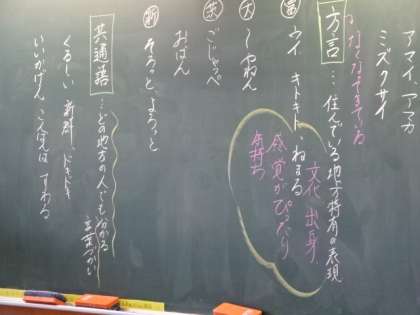 アマイ アマカ
ミズクサイ
方言 … 住んでいる地方特有の表現
富 ウイ キトキト ねまる
文化 出身
感覚がぴったり
気持ち
大 〜やねん
茨 ごじゃっぺ
おばん
新 そろっと、よろっと
共通語 … どの地方の人でも分かる
言葉づかい
くるしい 新鮮 ドキドキ
いいかげん、こんばんは すわる